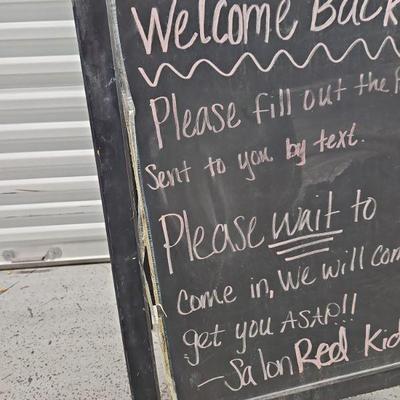 Welcome Back
Please fill out the
sent to you by text.
Please wait to
come in, We will com
get you ASAP!!
- Salon Red Kid